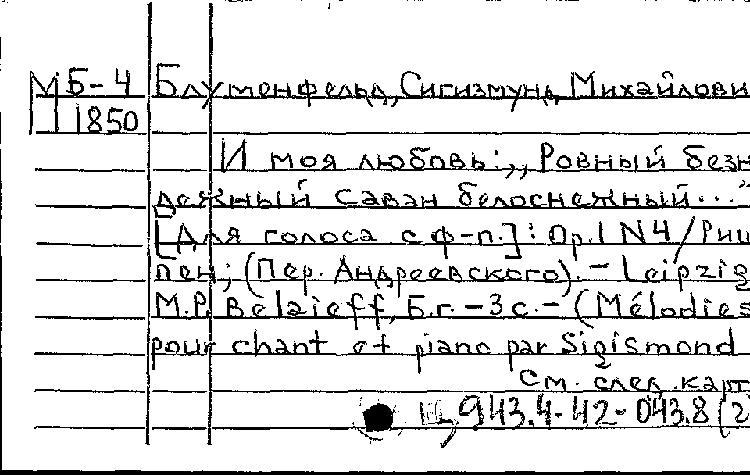 М Б-4 Блуменфельд, Сигизмунд Михайлови
1850
И моя любовь: ,,Ровный безн
дежный саван белоснежный..."
[Для голоса с ф-п.]: Op.1 N4/Риш
пен; (Пер. Андреевского). - Leipzig
M.P. Belaieff, Б.г. - 3 с. - (Mélodies
pour chant et piano par Sigismond
См. след. карт
943.4-42-043.8 (2